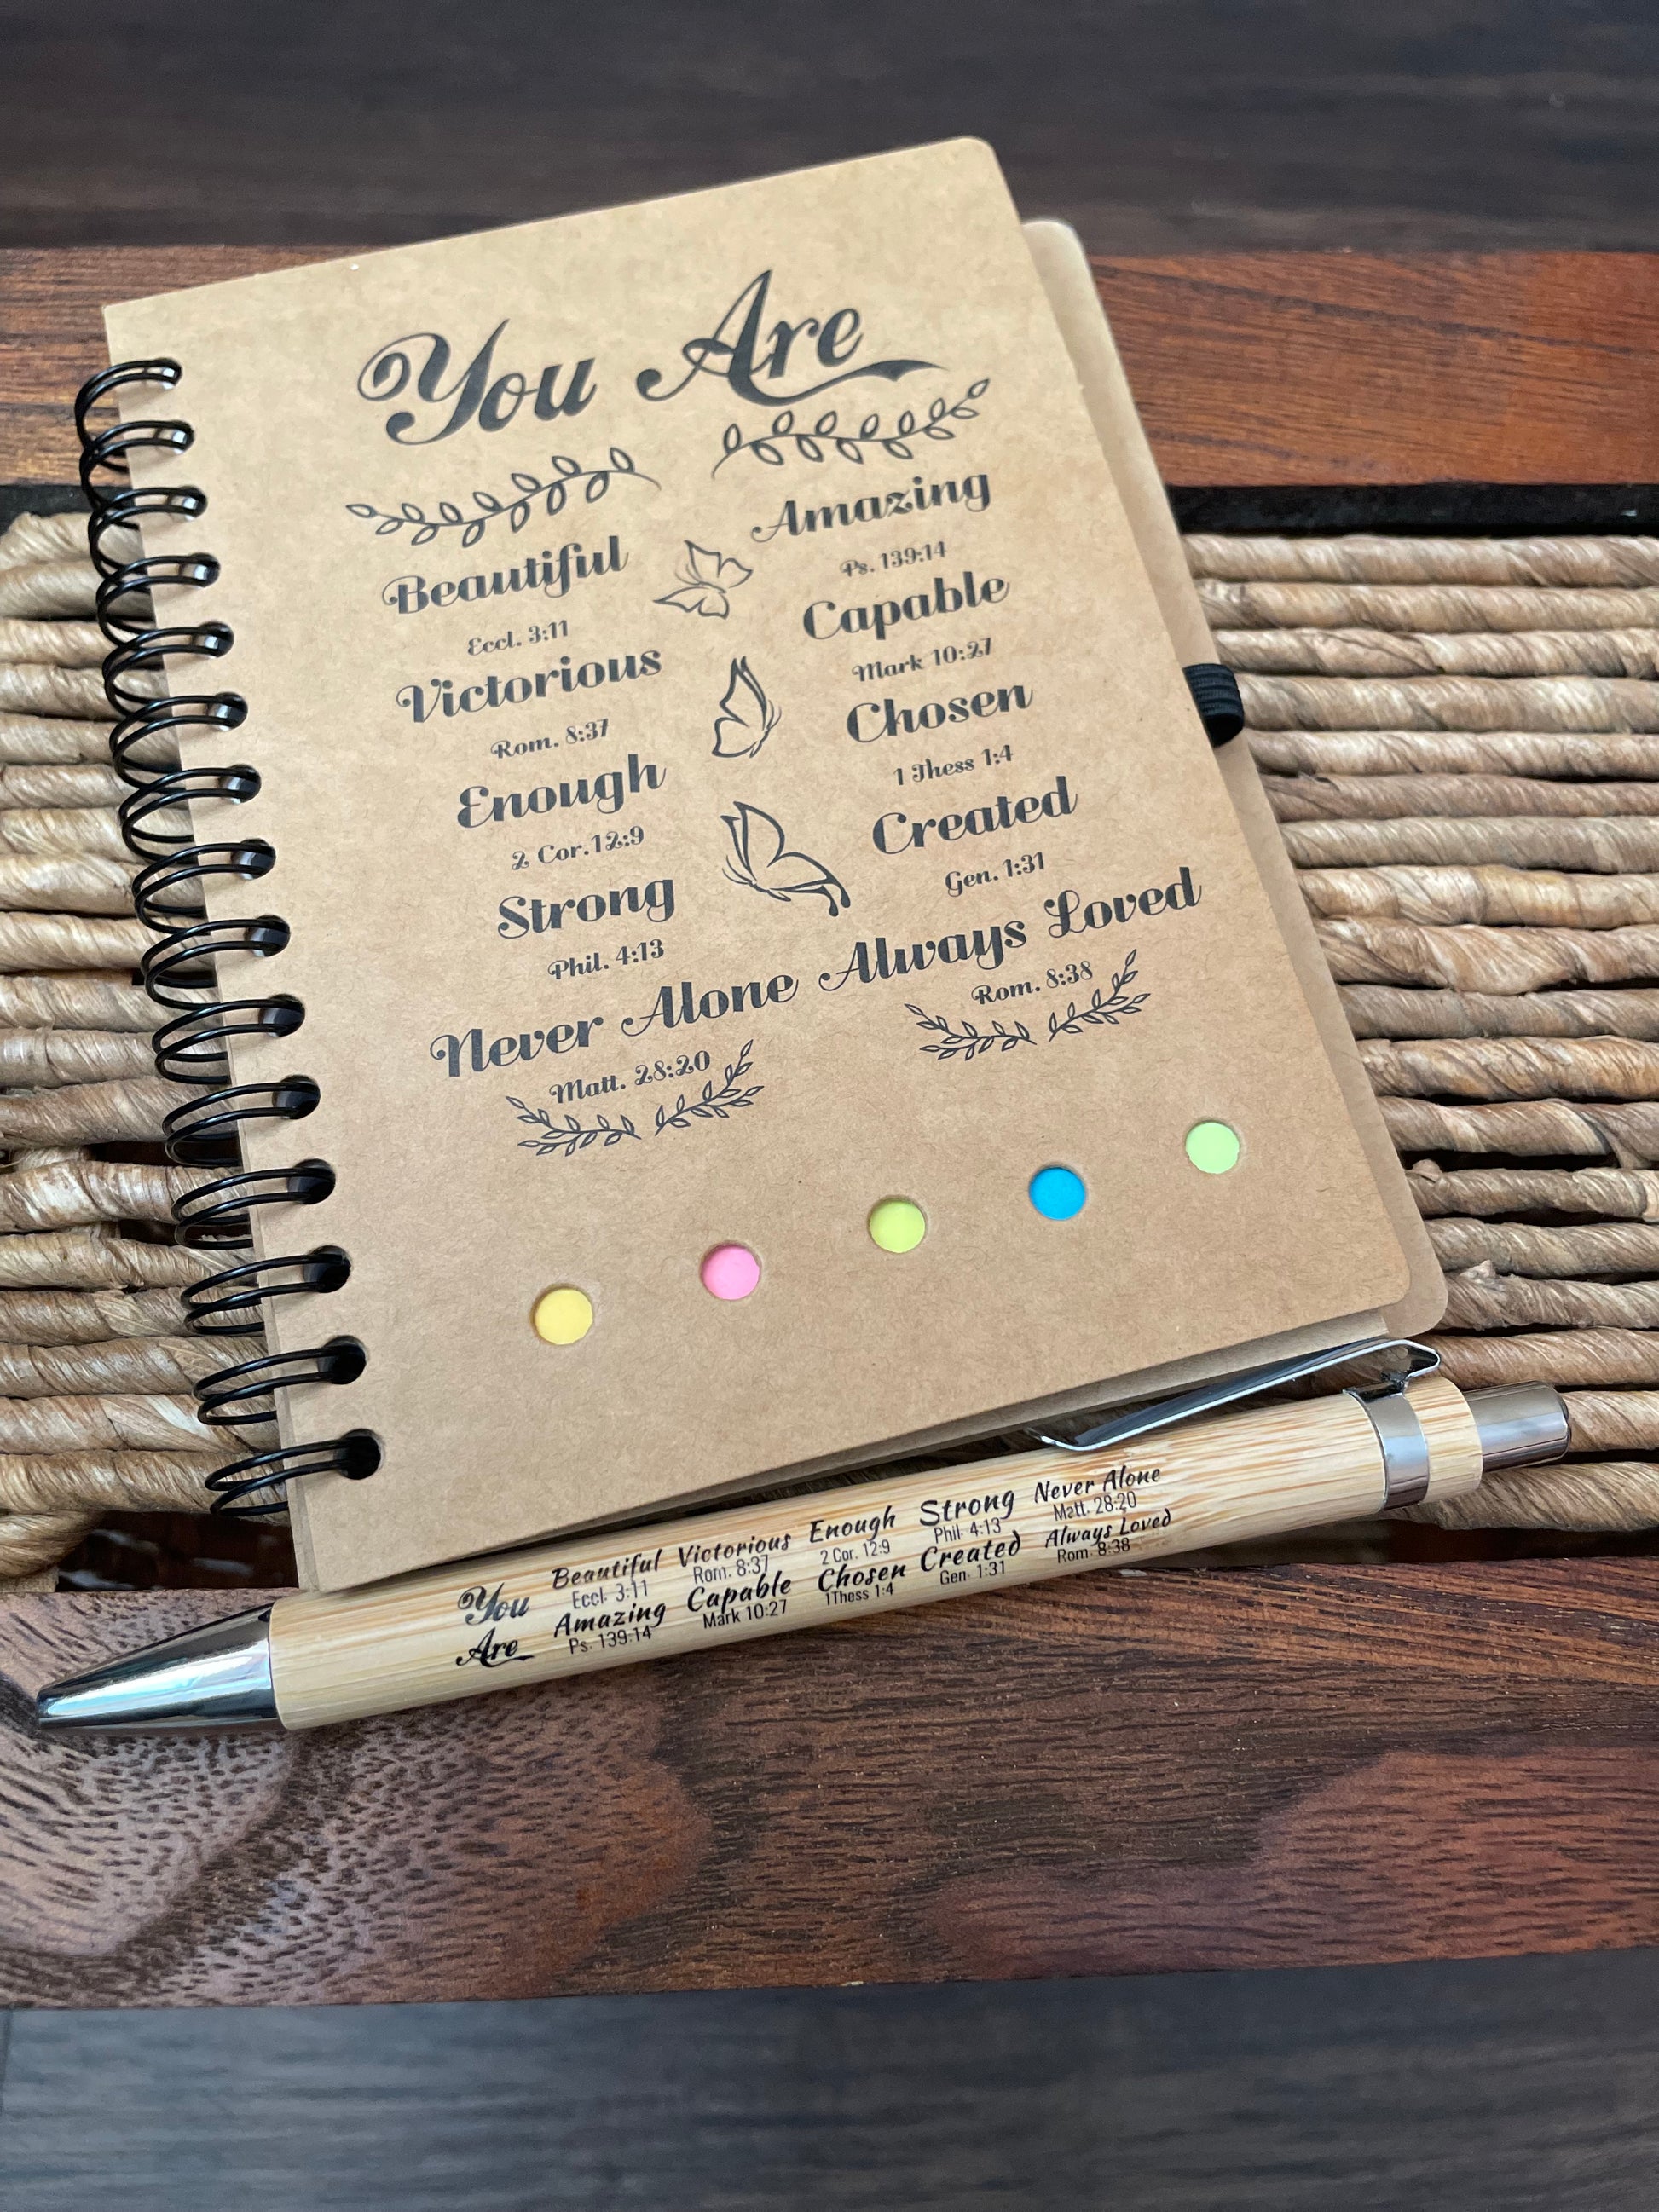 You Are
Beautiful
Eccl. 3:11
Victorious
Rom. 8:37
Enough
2 Cor.12:9
Strong
Phil. 4:13
Amazing
Ps. 139:14
Capable
Mark 10:27
Chosen
1 Thess 1:4
Created
Gen. 1:31
Never Alone Always Loved
Matt. 28:20 Rom. 8:38
You
Are
Beautiful Victorious Enough Strong Never Alone
Eccl. 3:11 Rom. 8:37 2 Cor. 12:9 Phil. 4:13 Matt. 28:20
Amazing Capable Chosen Created Always Loved
Ps. 139:14 Mark 10:27 1Thess 1:4 Gen. 1:31 Rom. 8:38